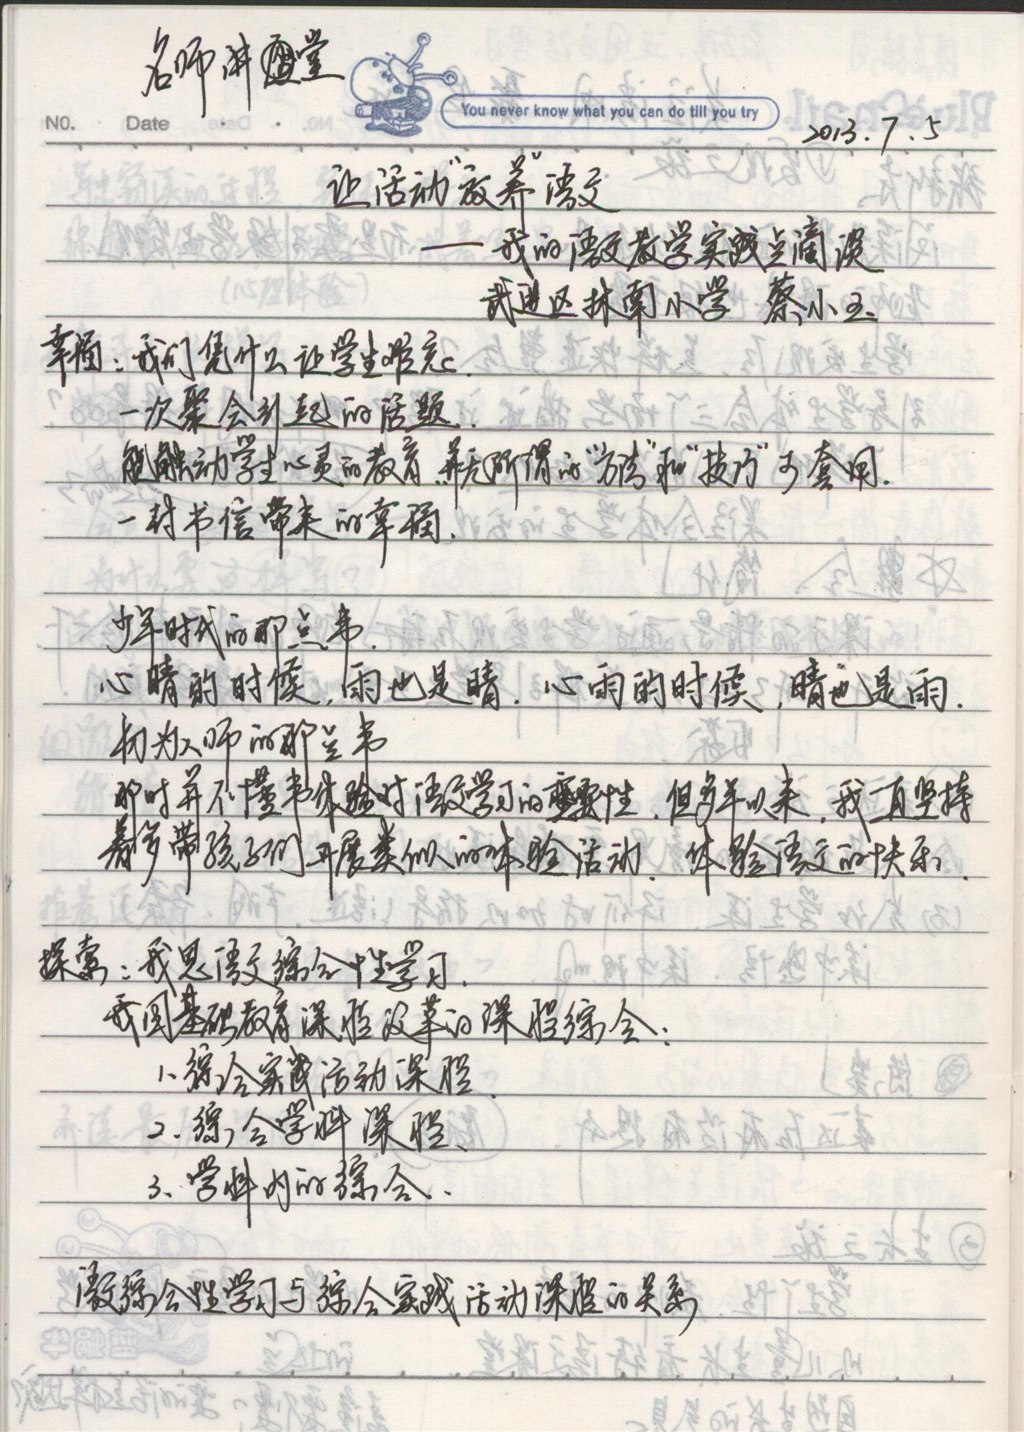 名师讲堂
You never know what you can do till you try
NO. Date
2013.7.5
让活动"放养"语文
——我的语文教学实践点滴谈
武进区林南小学 蔡小玉
幸福:我们凭什么让学生难忘.
一次聚会引起的话题.
能触动学生心灵的教育,并无所谓的"方法"和"技巧"可套用.
一封书信带来的幸福.
少年时代的那点事.
心晴的时候,雨也是晴.心雨的时候,晴也是雨.
初为人师的那点事
那时并不懂书体验对语文学习的重要性,但多年以来,我一直坚持
着多带孩子们开展类似的体验活动.体验语文的快乐.
探索:我思语文综合性学习.
我国基础教育课程改革的课程综合:
1.综合实践活动课程
2.综合学科课程、
3、学科内的综合.
语文综合性学习与综合实践活动课程的关系